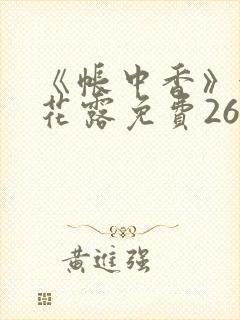 《帐中香》
花露免費26
黄進强